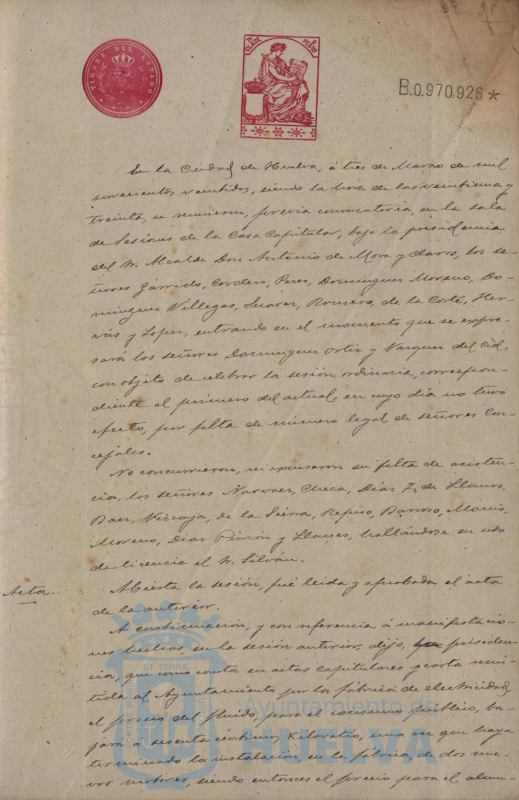 TIMBRE DEL ESTADO
CLASE
B.0.970.926*
En la Ciudad de Huelva, á tres de Marzo de mil
novecientos veintidos, siendo la hora de las veintiuna y
treinta, se reunieron, previa convocatoria, en la sala
de Sesiones de la Casa Capitular, bajo la presidencia
del Sr. Alcalde Don Antonio de Mora y Claros, los se-
ñores Garrido, Cordero, Perez, Dominguez Moreno, Do-
minguez Villegas, Suarez, Romero, de la Corte, Her-
vás y Lopez, entrando en el momento que se expre-
sará los señores Dominguez Ortiz y Vazquez del Cid,
con objeto de celebrar la sesión ordinaria, correspon-
diente al primero del actual, en cuyo dia no tuvo
efecto, por falta de número legal de señores Con-
cejales.
No concurrieron, ni excusaron su falta de asisten-
cia, los señores Narvaez, Checa, Diaz F. de Llanos,
Paez, Vizcaya, de la Sierra, Barroso,
Moreno, Diaz y Llanes, hallándose en uso
de licencia el Sr. Silván.
Acta.
Abierta la sesión, fué leida y aprobada el acta
de la anterior.
A continuación, y con referencia á manifestacio-
nes hechas, en la sesión anterior, dijo, la presiden-
cia, que como consta en actas capitulares y carta remi-
tida al Ayuntamiento por la fábrica de electricidad,
el precio del fluido, para el consumo público, ba-
jará á sesenta céntimos Kilovatio, una vez que haya
terminado la instalación, en la fábrica, de dos nue-
vos motores, siendo entonces el precio para el alum-
ET TERRAE
Ayuntamiento de
HUELVA